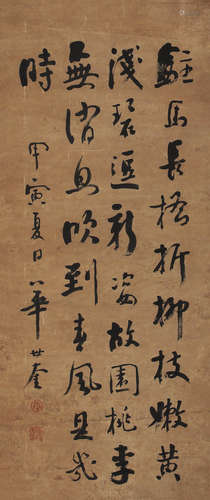 駐馬長橋折柳枝嫩黃
淺碧逗新姿故園桃李
無消息吹到春風是幾
時
甲寅夏日華世奎